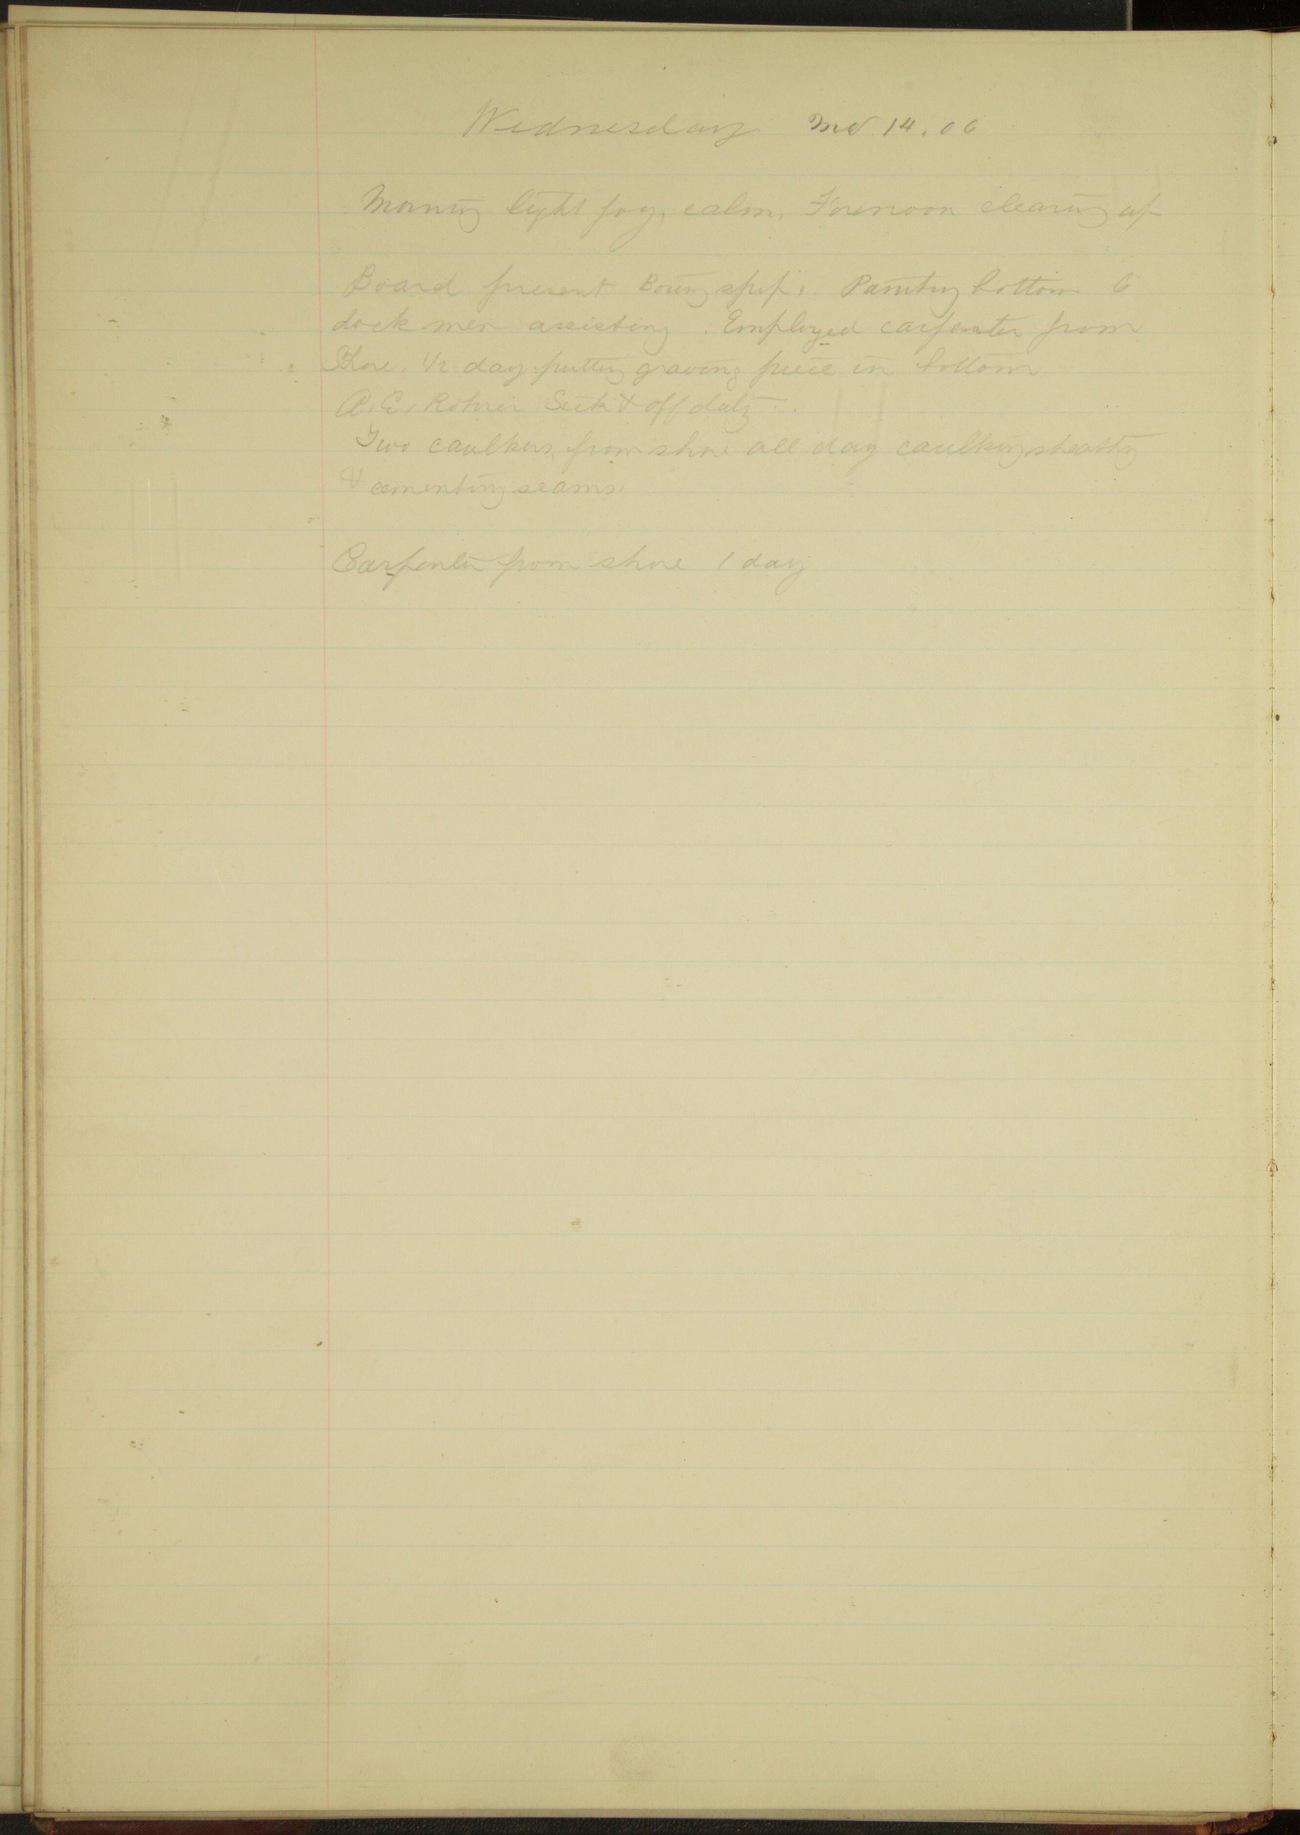 Wednesday Mch 14.06
Morning light fog, calm, Forenoon clearing up
Board present Boring ship. Painting bottom 6
dock men assisting. Employed carpenter from
Shore. 1/2 day putting graving piece in bottom
A. E. Rohrer Sick & off duty.
Two caulkers, from shore all day caulking sheathg
& cementing seams.
Carpenter from shore 1 day